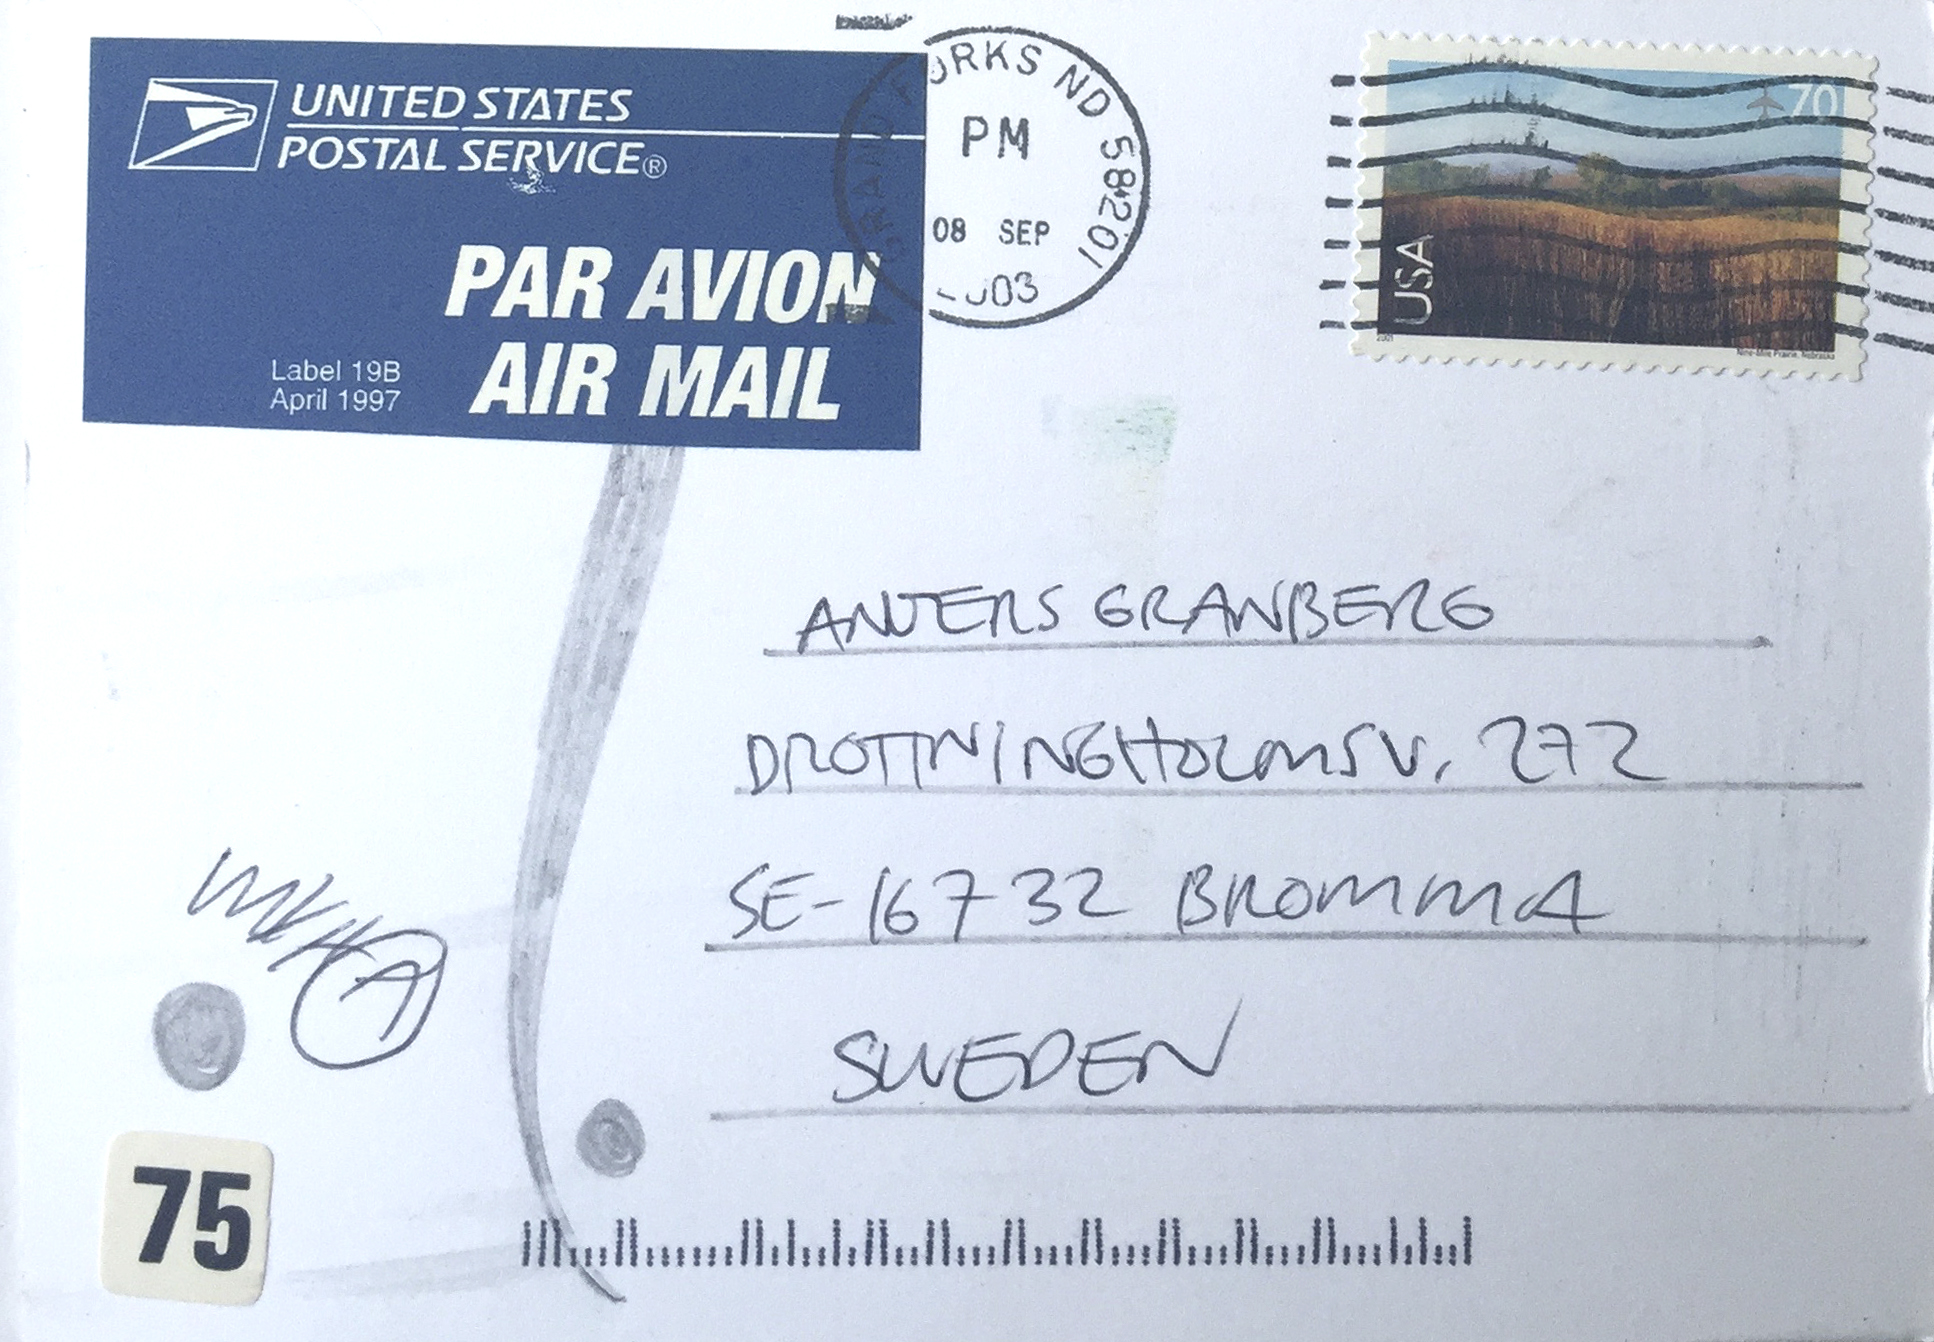 UNITED STATES
POSTAL SERVICE®
PAR AVION
AIR MAIL
Label 19B
April 1997
GRAND FORKS ND 58201
PM
08 SEP
2003
70
USA
2001
Nine-Mile Prairie, Nebraska
ANDERS GRANBERG
DROTTNINGHOLMSV. 272
SE-16732 BROMMA
SWEDEN
A
75